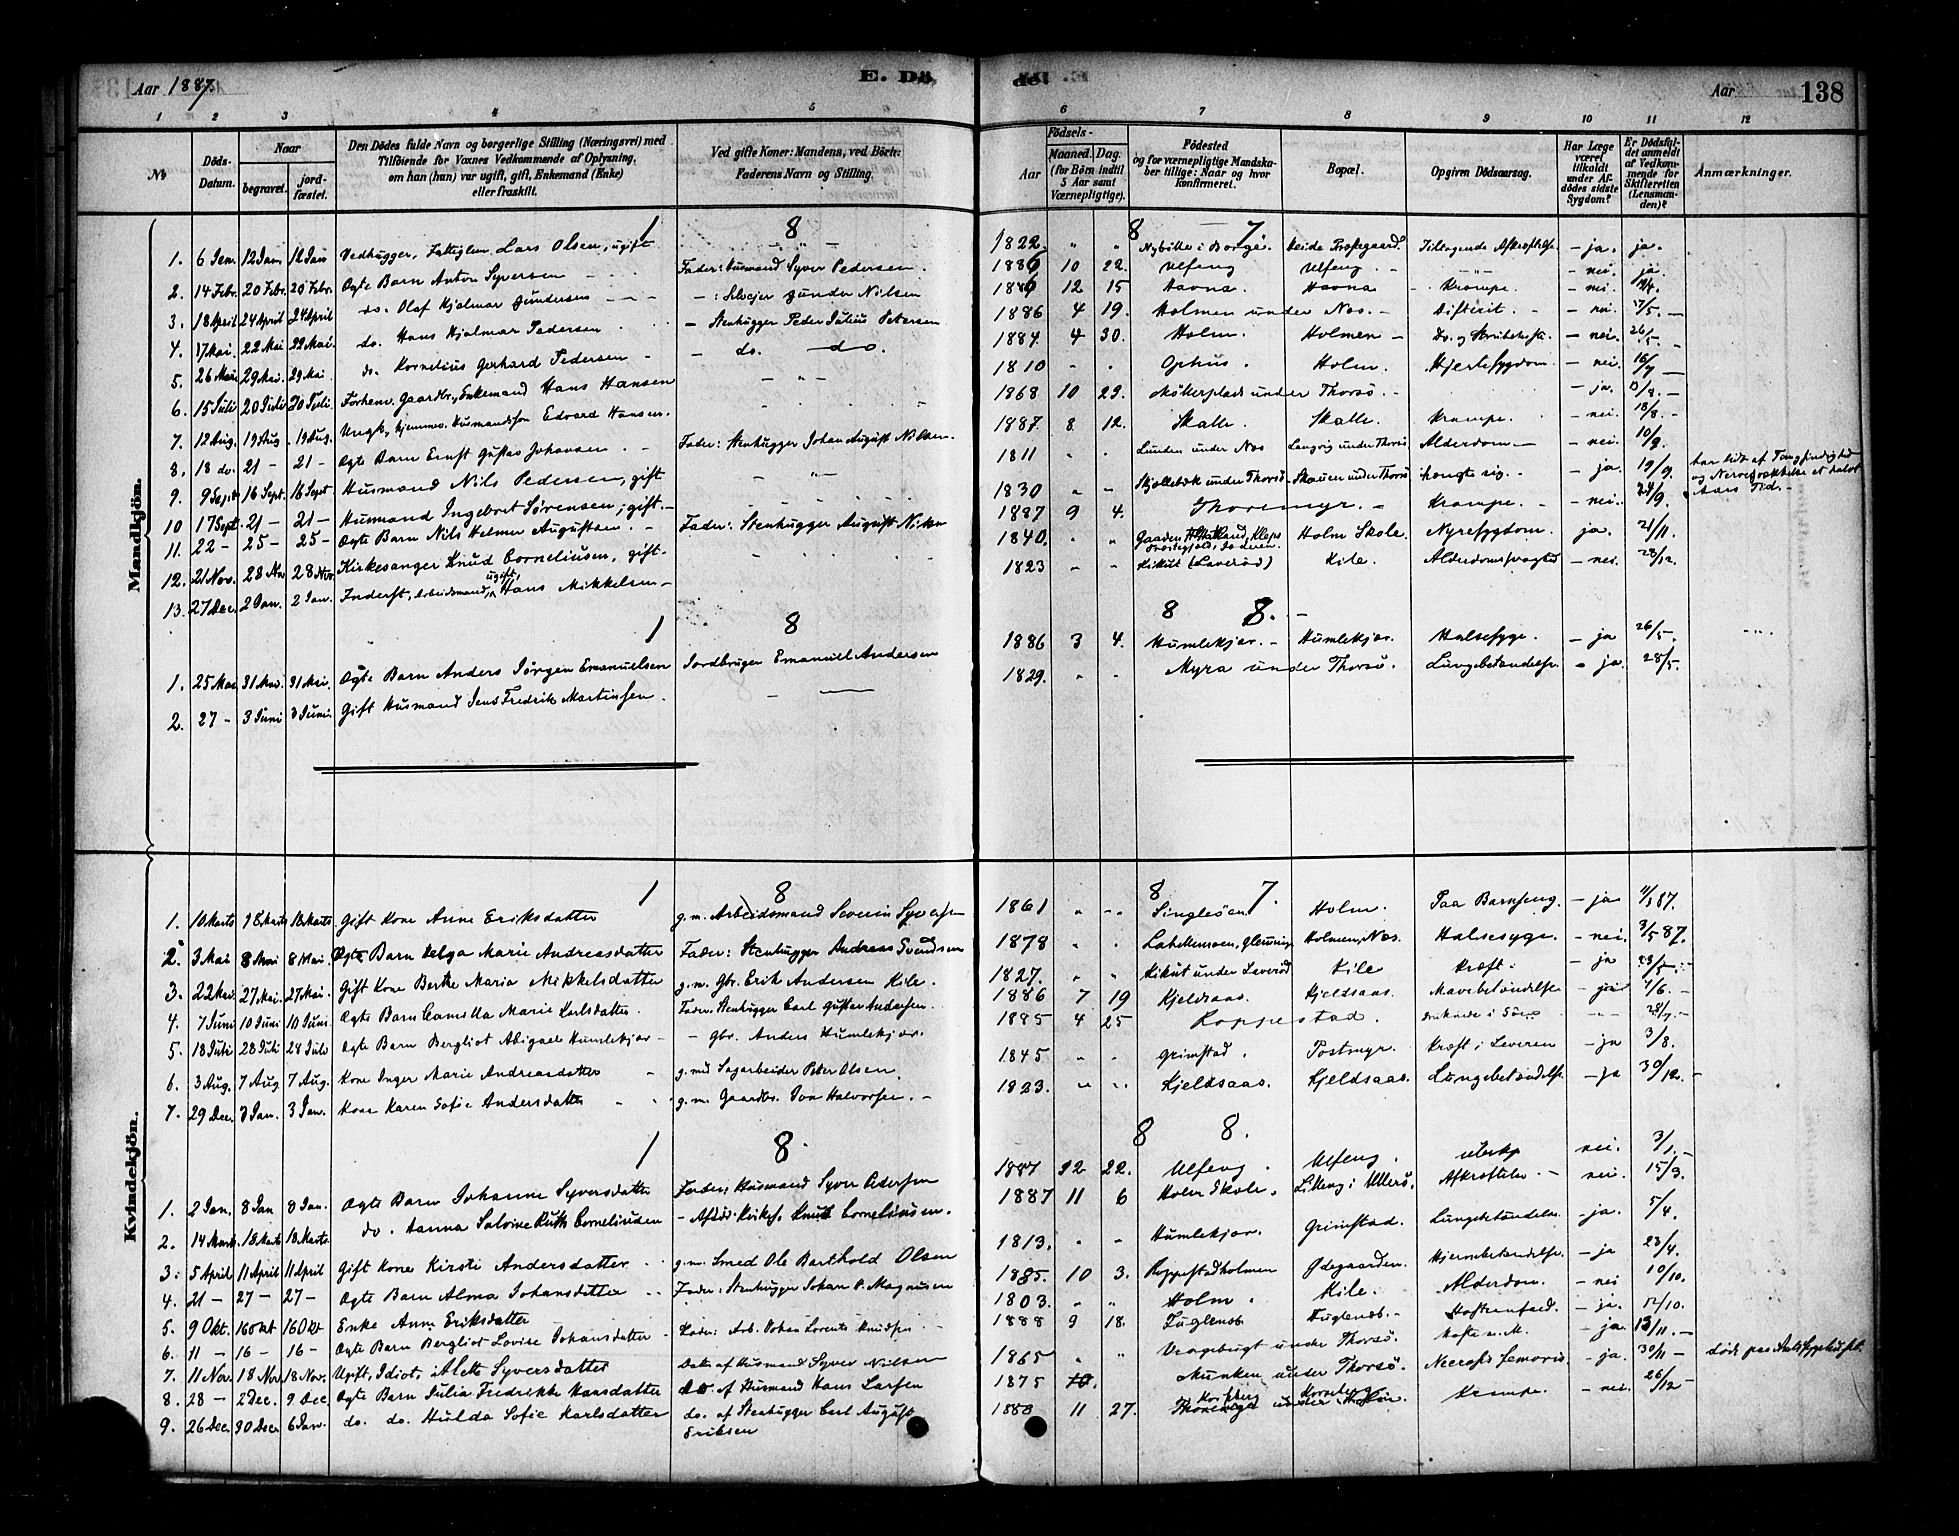 Aar 1887.
E. Dö
de!
Aar
138
1 2 3 4 5 6 7 8 9 10 11 12
No
Döds-Datum.
Naar
begravet.
jord-fæstet.
Den Dödes fulde Navn og borgerlige Stilling (Næringsvei) med
Tilföiende for Voxnes Vedkommende af Oplysning,
om han (hun) var ugift, gift, Enkemand (Enke)
eller fraskilt.
Ved gifte Koner: Mandens, ved Börn:
Faderens Navn og Stilling.
Födsels-
Aar
Maaned. Dag.
(for Börn indtil
5 Aar samt
Værnepligtige).
Födested
og for værnepligtige Mandska-
ber tillige: Naar og hvor
konfirmeret.
Bopæl.
Opgiven Dödsaarsag.
Har Læge
været
tilkaldt
under Af-
dödes sidste
Sygdom?
Er Dödsfal-
det anmeldt
af Vedkom-
mende for
Skifteretten
(Lensman-
den)?
Anmærkninger.
Mandkjön.
1 8 8 7.
1. 6 Jan. 12 Jan 12 Jan Vedhugger, Fattiglem Lars Olsen, ugift 1822. " " i Borge. ja. ja.
2. 14 Febr. 20 Febr. 20 Febr. Ægte Barn Anton Syversen Fader: Husmand Syver Pedersen. 1886 10 22. Ulfeng Ulfeng. nei. ja.
3. 18 April 24 April 24 April do. Olaf Hjalmar Gundersen Selvejer Gunder Nilsen 12 15 Havna. Havna Krampe. nei.
4. 17 Mai. 22 Mai 22 Mai. do. Hans Hjalmar Pedersen Stenhugger Peder Julius Petersen 1886 4 19. Holmen under Nes. Difterit. nei. 17/5.
5. 26 Mai 29 Mai. 29 Mai do. Kornelius Gerhard Pedersen do. do. 1884. 4 30. Holm. Holmen nei. 26/5
6. 15 Juli 20 Juli 20 Juli Forhenv. Gaardbr., Enkemand Hans Hansen 1810 Ophus. Holm. Hjertesygdom nei. 16/7
7. 12 Aug. 19 Aug. 19 Aug. Ungk., hjemmev. Husmandssøn Edvard Hansen. 1868 10 29. under Thorsö. ja. 13/8.
8. 18 do. 21 - 21 - Ægte Barn Ernst Gustav Johansen Fader: Stenhugger Johan August Nilsen. 1887. 8 12. Skalle. Skalle. Krampe. nei. 18/8.
9. 9 Sept 16 Sept. 16 Sept Husmand Nils Pedersen, gift 1811 Lunden under Nes Langvig under Thorsö Alderdom nei. 10/9.
10 17 Sept. 21 - 21 - Husmand Ingebret Sörensen, gift. 1830 Skjellebæk under Thorsö Skauen under Thorsö hængte sig. ja 19/9. har lidt af Tungsindighed og et halvt Aars Tid.
11. 22 - 25 - 25 - Ægte Barn Nils Helmer Augustsen. Fader: Stenhugger August Nilsen 1887 9 4. Thoremyr. Krampe. nei. 24/9.
12. 21 Nov. 28 Nov 28 Nov. Kirkesanger Knud Corneliussen, gift. 1840. Gaarden Klep Holm Skole. Nyresygdom. ja. 21/11.
13. 27 Dec. 2 Jan. 2 Jan. Inderst, Arbeidsmand, ugift, Hans Mikkelsen 1823 Kikut (Laveröd) Kile. nei. 28/12.
1 8 8 8.
1. 25 Mai 31 Mai. 31 Mai. Ægte Barn Anders Jørgen Emanuelsen Jordbruger Emanuel Andersen 1886 3 4. Humlekjær. Humlekjær. Halsesyge. ja 26/5.
2. 27 - 3 Juni 3 Juni. Gift Husmand Jens Fredrik Martinsen. 1829. Myra under Thorsö. Lungebetændelse. ja. 28/5.
Kvindekjön.
1 8 8 7.
1. 10 Marts 18 Marts 18 Marts. Gift Kone Anne Eriksdatter g.m. Arbeidsmand Severin Syversen 1861 Singlöen. Holm. Paa Barselseng. ja 11/3 87.
2. 3 Mai 8 Mai 8 Mai. Ægte Barn Helga Marie Andreasdatter Fader: Stenhugger Andreas Svendsen 1878 Glemminge Holmen, Nes. Halsesyge. nei. 3/5 87.
3. 22 Mai. 27 Mai. 27 Mai. Gift Kone Berthe Maria Mikkelsdatter g.m. Gbr. Erik Andersen Kile. 1827. Kikut under Laveröd Kile Kræft. ja 23/5.
4. 7 Juni 10 Juni 10 Juni Ægte Barn Camilla Marie Karlsdatter. Fader: Stenhugger Carl Gustav Andersen. 1886 7 19 Kjeldsaas. Kjeldsaas. Mavebetændelse 7/6.
5. 18 Juli 28 Juli 28 Juli Ægte Barn Bergliot Abigael Humlekjær Gbr. Anders Humlekjær. 1885 4 25 Roppestad. druknede i Söen
6. 3 Aug. 7 Aug 7 Aug. Kone Inger Marie Andreasdatter g. med Sagarbeider Peter Olsen. 1845 Grimstad. Postmyr. Kræft i Leveren ja 3/8.
7. 29 Dec. 3 Jan. 3 Jan. Kone Karen Sofie Andersdatter g.m. Gaardbr. Halvorsen. 1823. Kjeldsaas. Kjeldsaas. Lungebetændelse ja 30/12.
1 8 8 8.
1. 2 Jan. 8 Jan 8 Jan. Ægte Barn Johanne Syversdatter Fader: Husmand Syver Pedersen 1887 12 22. Ulfeng. Ulfeng. nei. 3/1.
2. 14 Marts. 18 Marts. 18 Marts. do. Hanna Ruth Corneliusen Afdöd Kirkes. Knud Corneliusen. 1887 11 6 Holm Skole. Afkræftelse nei. 15/3.
3. 5 April 11 April 11 April Gift Kone Kirsti Andersdatter g.m. Smed Ole Barthold Olsen 1813. Humlekjær. Grimstad. Lungebetændelse ja. 5/4.
4. 21 - 27 - 27 - Ægte Barn Alma Johansdatter Fader: Stenhugger Johan P. Magnusen 1885. 10 3. Roppestadholmen Ødegaarden. Hjernebetændelse. ja 23/4.
5. 9 Okt. 16 Okt 16 Okt Enke Anne Eriksdatter 1803. Holm. Kile. Alderdom. nei 10/10.
6. 11 - 16 - 16 - Ægte Barn Bergliot Lovise Johansdatter Fader: Arb. Johan Lorents Knudsen 1888 9 18. ja. 12/10.
7. 11 Nov. 18 Nov 18 Nov. Ugift, Idiot, Alette Syversdatter Datter af Husmand Syver Nilsen 1865 under Thorsö. ja. 13/11.
8. 28 - 2 Dec. 9 Dec. Ægte Barn Julia Fredrikke Hansdatter do. af Husmand Hans Larsen 1875 10. Munken under Thorsö. ja. 30/11 död paa
9. 26 Dec. 30 Dec. 6 Jan. do. do. Hulda Sofie Karlsdatter do. af Stenhugger Carl August Eriksen 1888 11 27. Krampe. nei. 26/12